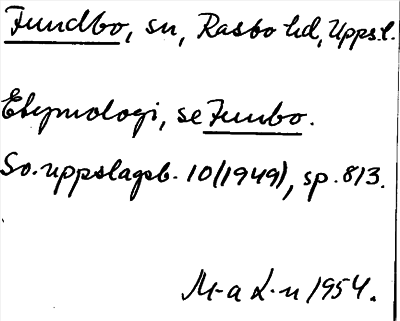 Fundbo, sn, Rasbo hd, Upps.l.
Etymologi, se Funbo.
Sv. uppslagsb. 10(1949), sp. 813.
M-a L-n 1954.